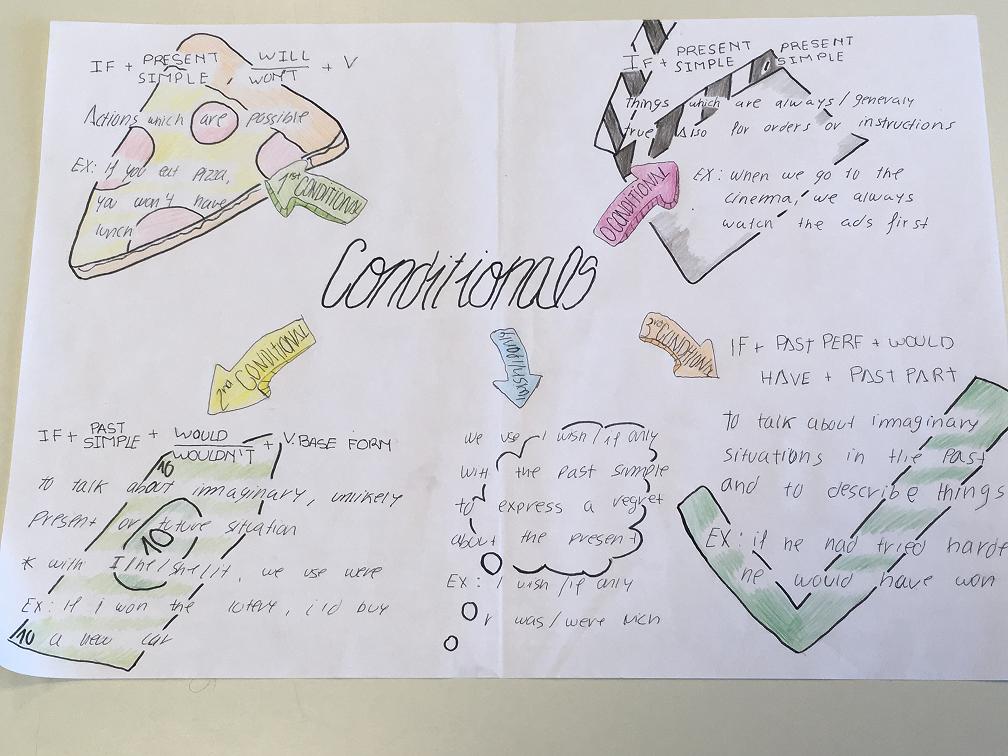 Conditionals
1st CONDITIONAL
IF + PRESENT SIMPLE, WILL / WON'T + V
Actions which are possible
EX: if you eat pizza,
you won't have
lunch
0 CONDITIONAL
IF + PRESENT SIMPLE, PRESENT SIMPLE
Things which are always / generaly
true. Also for orders or instructions
EX: when we go to the
cinema, we always
watch the ads first
2nd CONDITIONAL
IF + PAST SIMPLE + WOULD / WOULDN'T + V. BASE FORM
10
to talk about immaginary, unlikely
present or future situation
10
* with I/he/she/it, we use were
EX: if i won the lotery, i'd buy
10 a new car
we use I wish / if only
with the past simple
to express a regret
about the present
EX: I wish / if only
I was / were rich
3rd CONDITIONAL
IF + PAST PERF + WOULD
HAVE + PAST PART
to talk about immaginary
situations in the past
and to describe things
EX: if he had tried harde
he would have won